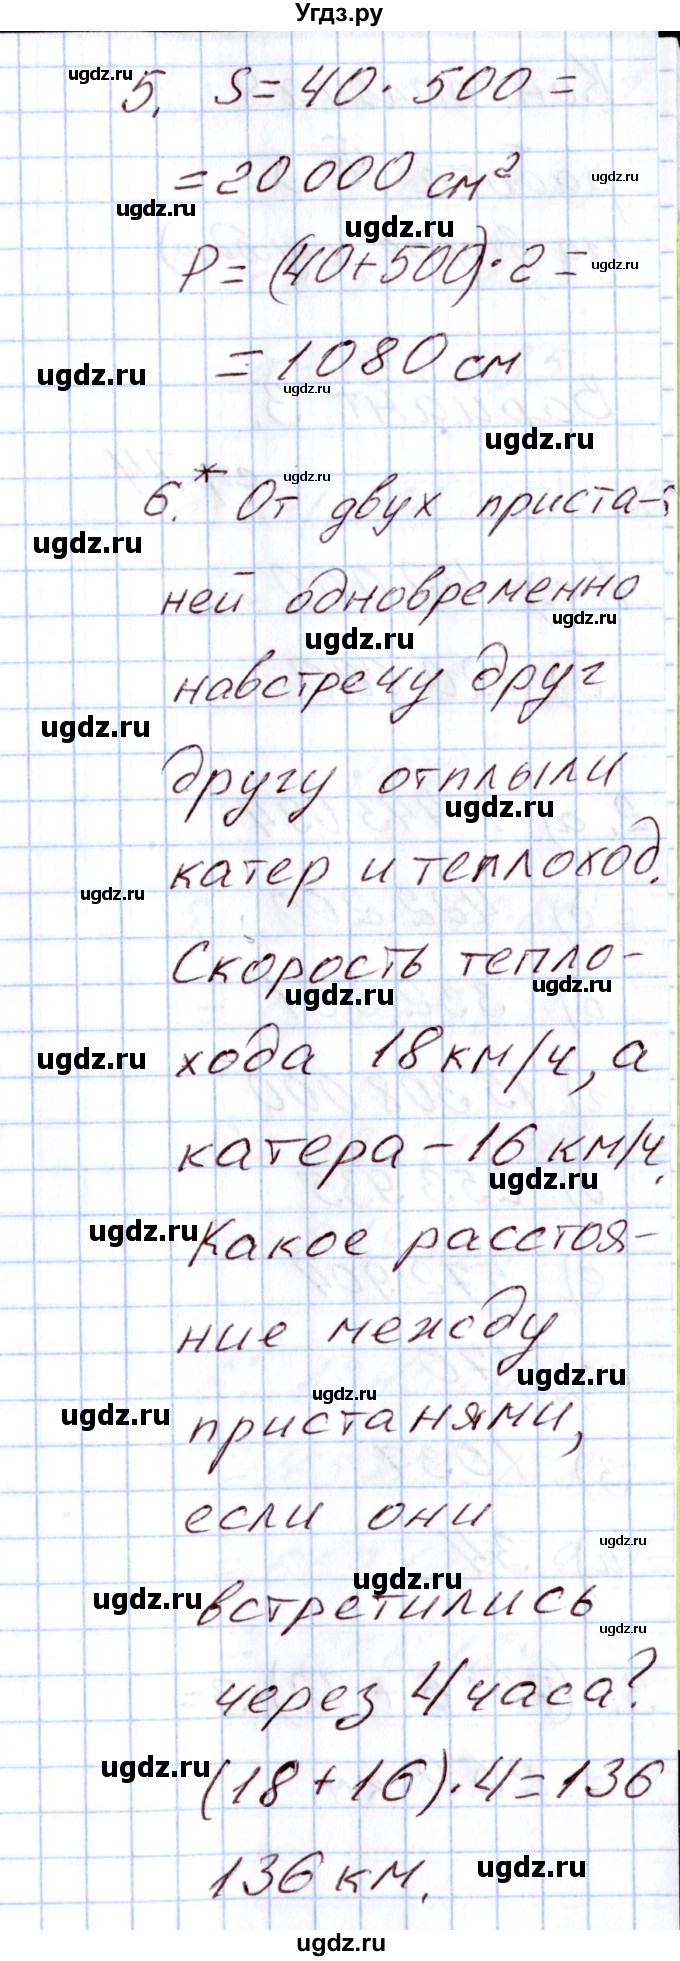 Угдз.ру
5. S = 40 · 500 =
= 20 000 см²
P = (40 + 500) · 2 =
= 1080 см
6.* От двух приста-
ней одновременно
навстречу друг
другу отплыли
катер и теплоход.
Скорость тепло-
хода 18 км/ч, а
катера – 16 км/ч.
Какое расстоя-
ние между
пристанями,
если они
встретились
через 4 часа?
(18 + 16) · 4 = 136
136 км.
ugdz.ru